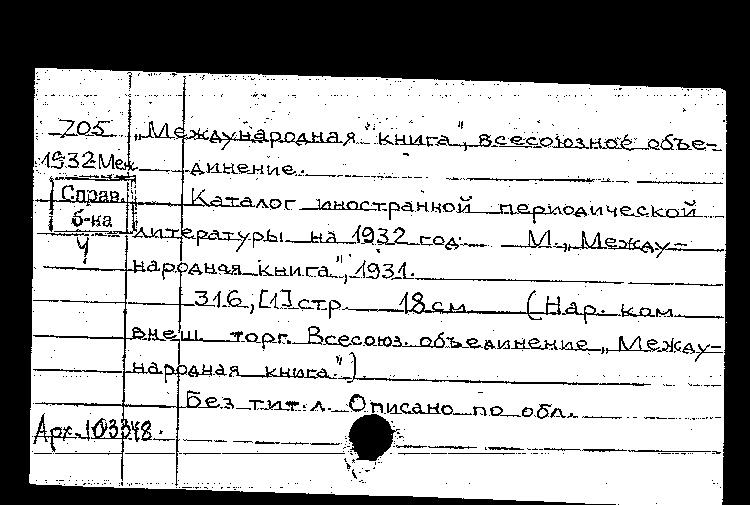 705 „Международная книга", всесоюзное объе-
1932 Меж динение.
Справ. Каталог иностранной периодической
б-ка
Ч литературы на 1932 год. М., „Между-
народная книга", 1931.
316, [1] стр. 18 см (Нар. ком.
внеш. торг. Всесоюз. объединение „Между-
народная книга").
Без тит. л. Описано по обл.
Арх. 103348.